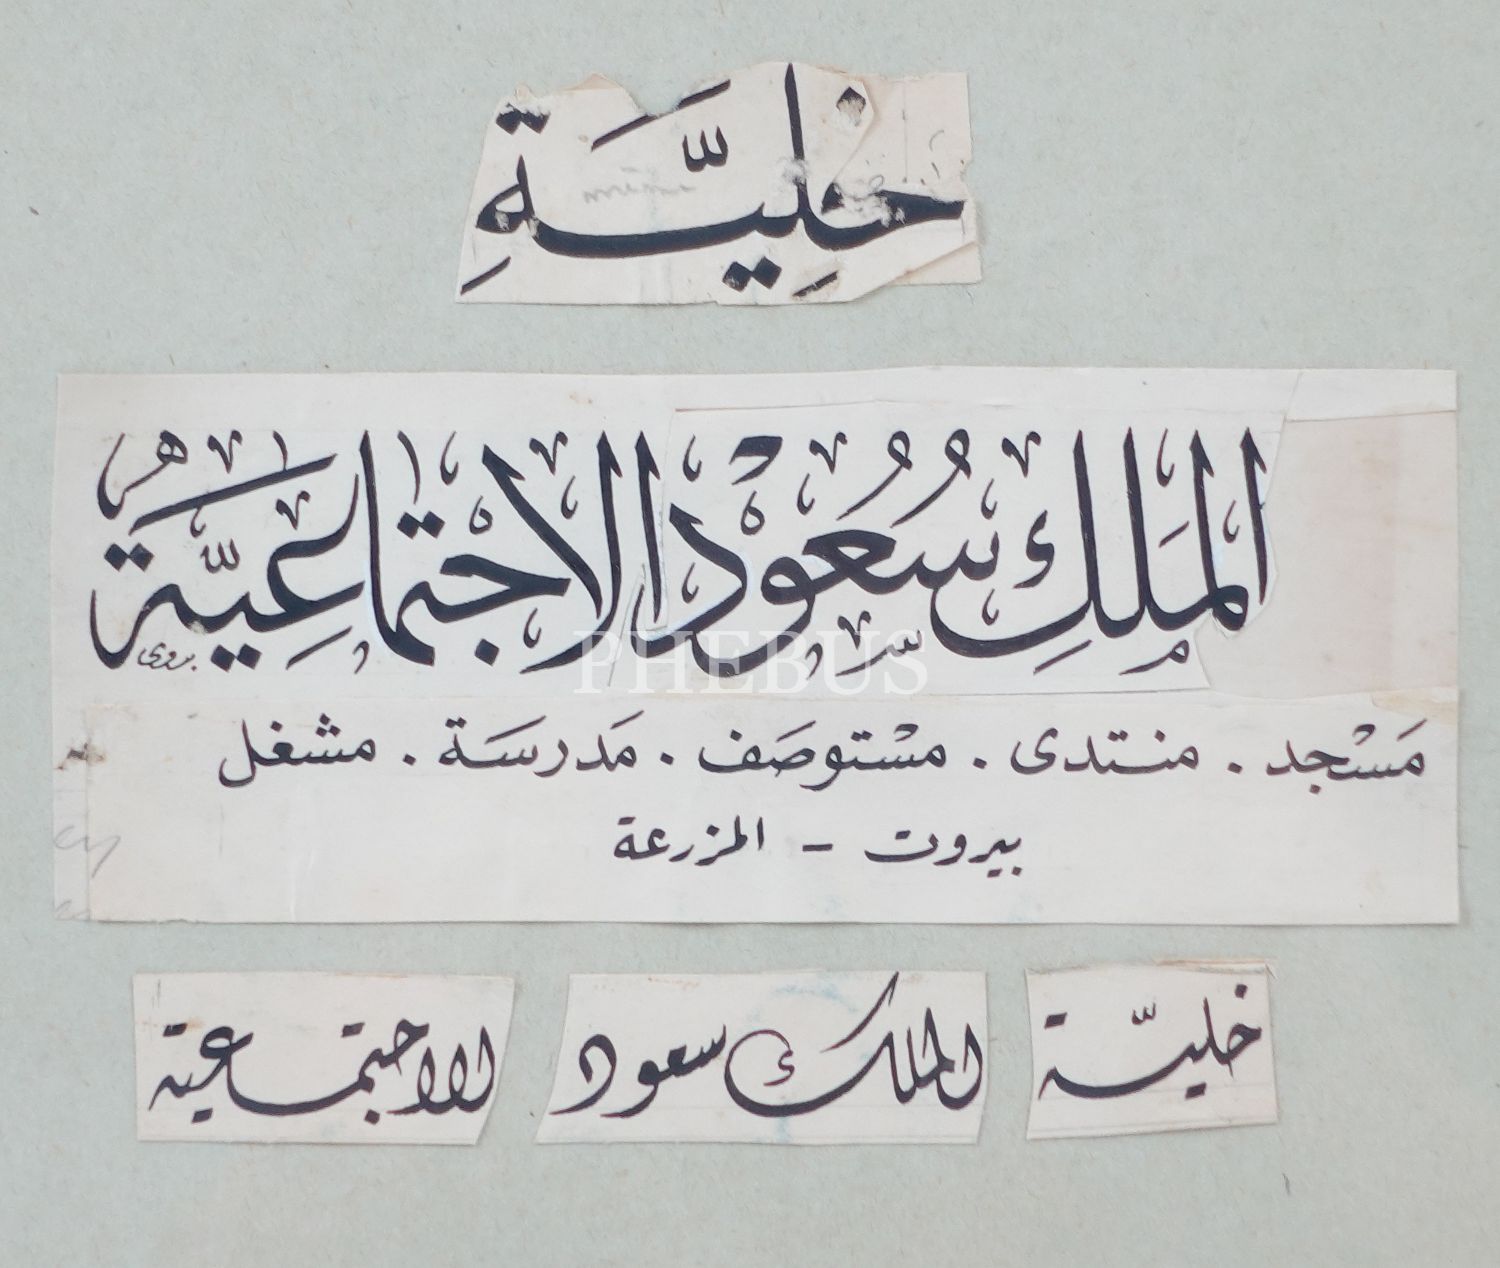 خلِيَّةِ
الملَكِ سُعُوْد الاجْتماعِيَّة
بدوي
PHEBUS
مَسْجد . منتدى . مسْتوصَف . مَدرسَة . مشغل
بيروت - المزرعة
خليّة الملك سعود الاجتماعية